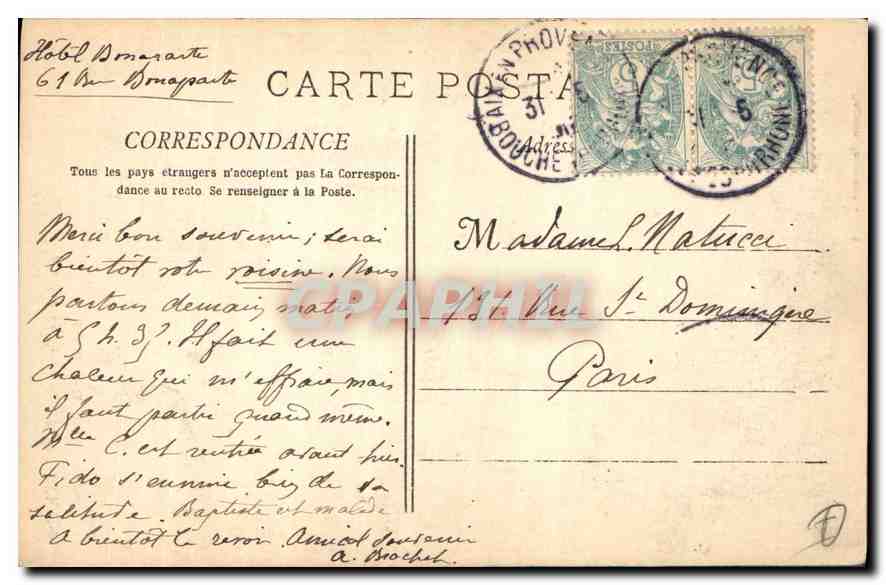 Hôtel Bonaparte
61 Rue Bonaparte
CARTE POSTA
CORRESPONDANCE
Tous les pays étrangers n'acceptent pas La Correspon-
dance au recto. Se renseigner à la Poste.
Adress
POSTES
AIX EN PROVEN
31 5
BOUCHE
5
DU RHONE
Merci bon souvenir; serai
bientôt votre voisine. Nous
partons demain matin
à 5 h. 35. Il fait une
chaleur qui m'effraie, mais
il faut partir quand même.
Mlle C. est rentrée avant hier.
Fido s'ennuie bien de sa
solitude. Baptiste est malade
A bientôt le revoir. Amical souvenir
A. Brochet.
Madame L. Natucci
131 Rue St Dominique
Paris
CPAPHIL
F